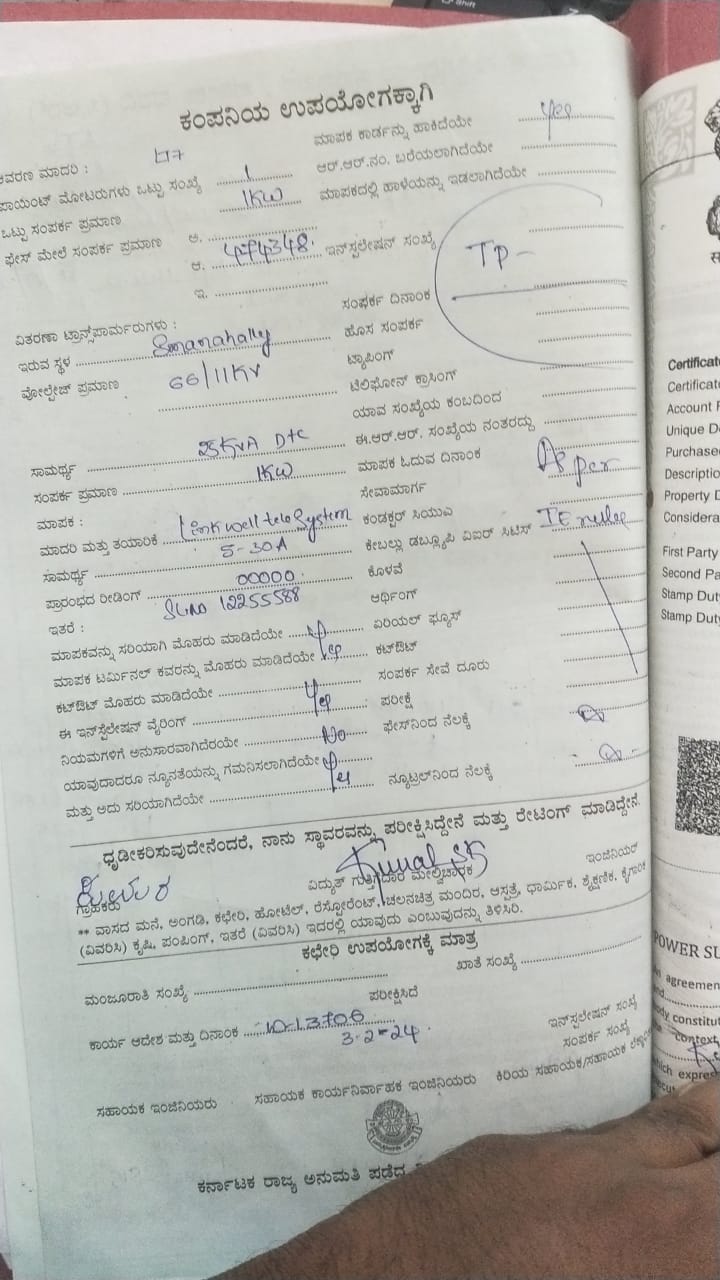 ಕಂಪನಿಯ ಉಪಯೋಗಕ್ಕಾಗಿ
ಆವರಣ ಮಾದರಿ : LT7
ಮಾಪಕ ಕಾರ್ಡನ್ನು ಹಾಕಿದೆಯೇ Yes
ಪಾಯಿಂಟ್ ಮೋಟರುಗಳು ಒಟ್ಟು ಸಂಖ್ಯೆ 1
ಆರ್.ಆರ್.ನಂ. ಬರೆಯಲಾಗಿದೆಯೇ
ಒಟ್ಟು ಸಂಪರ್ಕ ಪ್ರಮಾಣ 1KW
ಮಾಪಕದಲ್ಲಿ ಹಾಳೆಯನ್ನು ಇಡಲಾಗಿದೆಯೇ
ಫೇಸ್ ಮೇಲೆ ಸಂಪರ್ಕ ಪ್ರಮಾಣ ಅ.
ಆ. 474348. ಇನ್‌ಸ್ಟಲೇಷನ್ ಸಂಖ್ಯೆ TP -
ಇ.
ವಿತರಣಾ ಟ್ರಾನ್ಸ್‌ಫಾರ್ಮರುಗಳು :
ಸಂಪರ್ಕ ದಿನಾಂಕ
ಇರುವ ಸ್ಥಳ
ಹೊಸ ಸಂಪರ್ಕ
ವೋಲ್ಟೇಜ್ ಪ್ರಮಾಣ 66/11KV
ಟ್ಯಾಪಿಂಗ್
ಟೆಲಿಫೋನ್ ಕ್ರಾಸಿಂಗ್
ಯಾವ ಸಂಖ್ಯೆಯ ಕಂಬದಿಂದ
ಸಾಮರ್ಥ್ಯ 25KVA DTC
ಈ.ಆರ್.ಆರ್. ಸಂಖ್ಯೆಯ ನಂತರದ್ದು
ಸಂಪರ್ಕ ಪ್ರಮಾಣ 1KW
ಮಾಪಕ ಓದುವ ದಿನಾಂಕ As per
ಮಾಪಕ :
ಸೇವಾಮಾರ್ಗ
ಮಾದರಿ ಮತ್ತು ತಯಾರಿಕೆ Linkwell tele System
ಕಂಡಕ್ಟರ್ ಸಿಯುವಿ
ಸಾಮರ್ಥ್ಯ 5-30A
ಕೇಬಲ್ಲು ಡಬ್ಲ್ಯೂಪಿ ವಿಐರ್ ಸಿಟಿಎಸ್ IE rules
ಪ್ರಾರಂಭದ ರೀಡಿಂಗ್ 00000
ಕೊಳವೆ
ಇತರೆ : Sl.no 12255588
ಅರ್ಥಿಂಗ್
ಮಾಪಕವನ್ನು ಸರಿಯಾಗಿ ಮೊಹರು ಮಾಡಿದೆಯೇ
ಏರಿಯಲ್ ಫ್ಯೂಸ್
ಮಾಪಕ ಟರ್ಮಿನಲ್ ಕವರನ್ನು ಮೊಹರು ಮಾಡಿದೆಯೇ Yes
ಕಟ್‌ಔಟ್
ಕಟ್‌ಔಟ್ ಮೊಹರು ಮಾಡಿದೆಯೇ
ಸಂಪರ್ಕ ಸೇವೆ ದೂರು
ಈ ಇನ್‌ಸ್ಟೆಲೇಷನ್ ವೈರಿಂಗ್ Yes
ಪರೀಕ್ಷೆ
ನಿಯಮಗಳಿಗೆ ಅನುಸಾರವಾಗಿದೆರಯೇ No
ಫೇಸ್‌ನಿಂದ ನೆಲಕ್ಕೆ
ಯಾವುದಾದರೂ ನ್ಯೂನತೆಯನ್ನು ಗಮನಿಸಲಾಗಿದೆಯೇ
ಮತ್ತು ಅದು ಸರಿಯಾಗಿದೆಯೇ Yes
ನ್ಯೂಟ್ರಲ್‌ನಿಂದ ನೆಲಕ್ಕೆ
ಧೃಡೀಕರಿಸುವುದೇನೆಂದರೆ, ನಾನು ಸ್ಥಾವರವನ್ನು ಪರೀಕ್ಷಿಸಿದ್ದೇನೆ ಮತ್ತು ರೇಟಿಂಗ್ ಮಾಡಿದ್ದೇನೆ.
ಗ್ರಾಹಕರು
ವಿದ್ಯುತ್ ಗುತ್ತಿಗೆದಾರ ಮೇಲ್ವಿಚಾರಕ
ಇಂಜಿನಿಯರ್
** ವಾಸದ ಮನೆ, ಅಂಗಡಿ, ಕಛೇರಿ, ಹೋಟೆಲ್, ರೆಸ್ಟೋರೆಂಟ್, ಚಲನಚಿತ್ರ ಮಂದಿರ, ಆಸ್ಪತ್ರೆ, ಧಾರ್ಮಿಕ, ಶೈಕ್ಷಣಿಕ, ಕೈಗಾರಿಕೆ
(ವಿವರಿಸಿ) ಕೃಷಿ, ಪಂಪಿಂಗ್, ಇತರೆ (ವಿವರಿಸಿ) ಇದರಲ್ಲಿ ಯಾವುದು ಎಂಬುವುದನ್ನು ತಿಳಿಸಿರಿ.
ಕಛೇರಿ ಉಪಯೋಗಕ್ಕೆ ಮಾತ್ರ
ಮಂಜೂರಾತಿ ಸಂಖ್ಯೆ
ಖಾತೆ ಸಂಖ್ಯೆ
ಪರೀಕ್ಷಿಸಿದೆ
ಕಾರ್ಯ ಆದೇಶ ಮತ್ತು ದಿನಾಂಕ
3-2-24.
ಇನ್‌ಸ್ಟಲೇಷನ್ ಸಂಖ್ಯೆ
ಸಂಪರ್ಕ ಸಂಖ್ಯೆ
ಸಹಾಯಕ ಇಂಜಿನಿಯರು
ಸಹಾಯಕ ಕಾರ್ಯನಿರ್ವಾಹಕ ಇಂಜಿನಿಯರು
ಕಿರಿಯ ಸಹಾಯಕ/ಸಹಾಯಕ
ಕರ್ನಾಟಕ ರಾಜ್ಯ ಅನುಮತಿ ಪಡೆದ
Certificate
Certificate
Account
Unique
Purchased
Property
First Party
Second Pa
Stamp Duty
Stamp Duty
POWER SU
agreement
constitu
context,